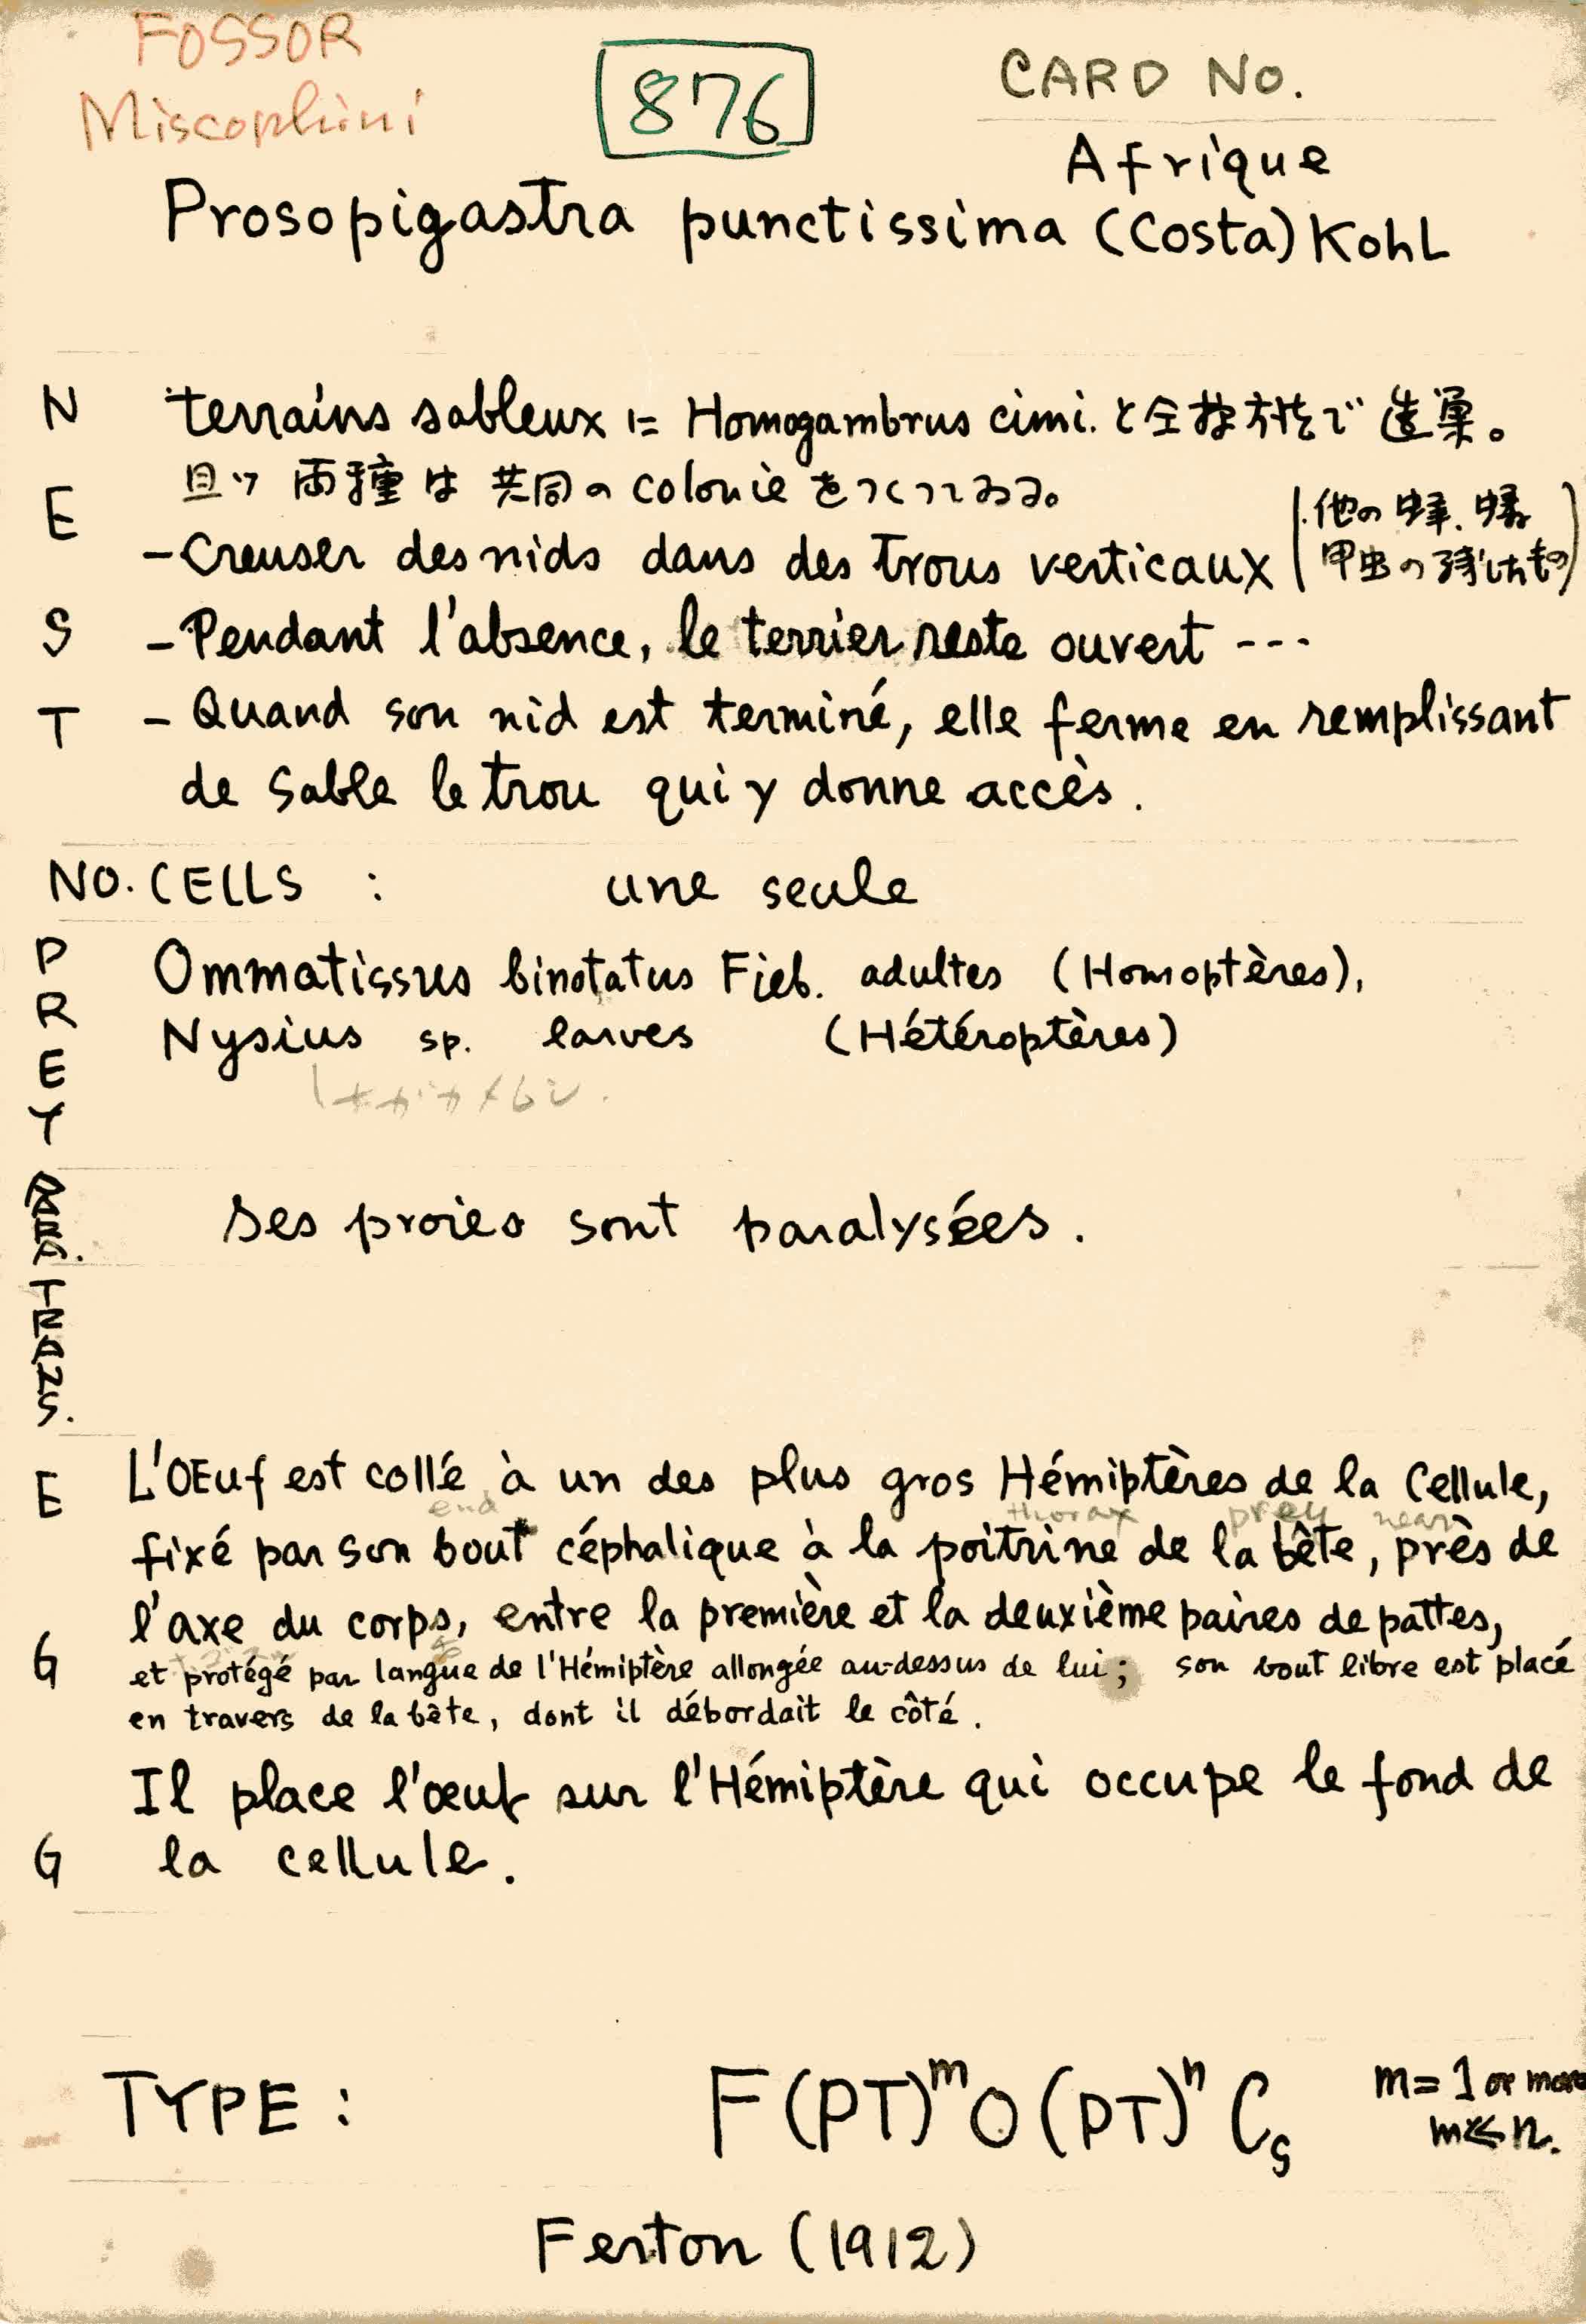 FOSSOR
Miscophini
876
CARD No.
Afrique
Prosopigastra punctissima (Costa) Kohl
NEST
terrains sableux に Homogambrus cimi. と全 で造巣。
且ツ 両種は 共同の colonie をつくつてゐる。
-Creuser des nids dans des trous verticaux (他の蜂. 蟻 甲虫の残したもの)
-Pendant l'absence, le terrier reste ouvert ---
- Quand son nid est terminé, elle ferme en remplissant
de sable le trou qui y donne accès.
NO. CELLS : une seule
PREY
Ommatissus binotatus Fieb. adultes (Homoptères),
Nysius sp. larves (Hétéroptères)
TRANS.
Ses proies sont paralysées.
EGG
L'OEuf est collé à un des plus gros Hémiptères de la Cellule,
end thorax prey near
fixé par son bout céphalique à la poitrine de la bête, près de
l'axe du corps, entre la première et la deuxième paires de pattes,
et protégé par langue de l'Hémiptère allongée au-dessus de lui; son bout libre est placé
en travers de la bête, dont il débordait le côté.
Il place l'œuf sur l'Hémiptère qui occupe le fond de
la cellule.
TYPE : F(PT)ᵐO(PT)ⁿCs m=1 or more
m≪n.
Ferton (1912)